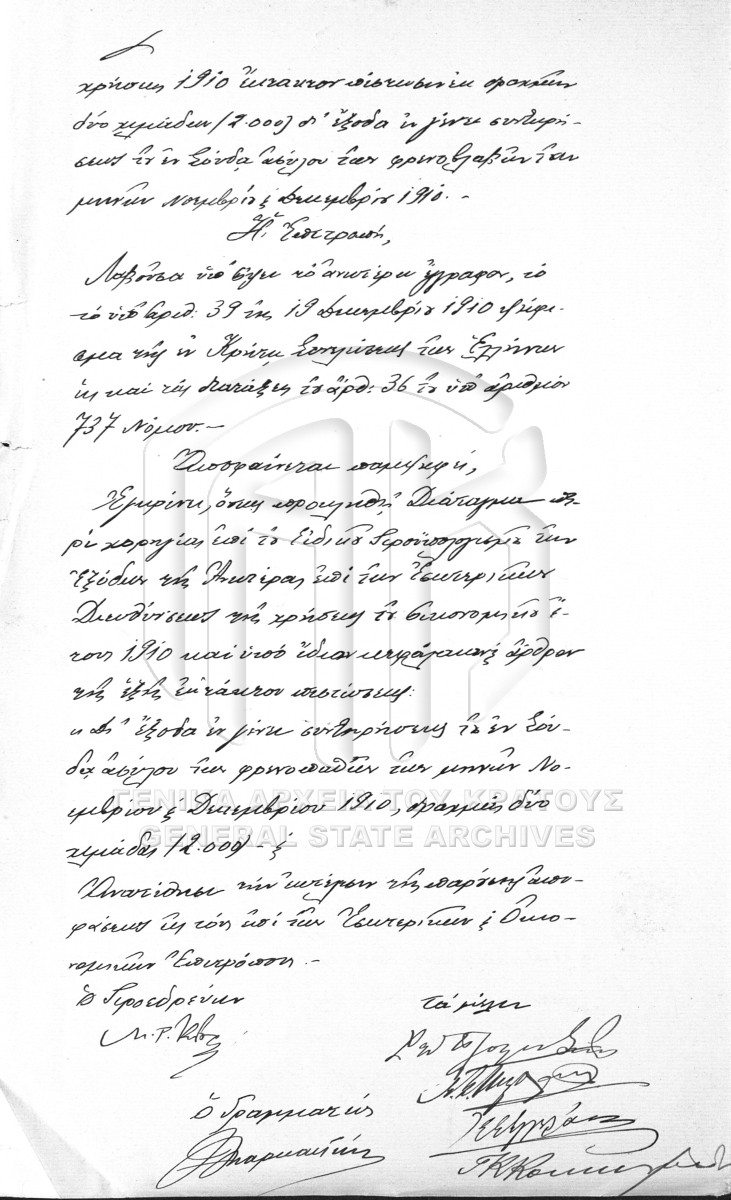 χρήσεως 1910 ἔκτακτον πίστωσιν ἐκ δραχμῶν
δύο χιλιάδων (2.000) δι' ἔξοδα ἐν γένει συντηρή-
σεως τοῦ ἐν Σούδᾳ ἀσύλου τῶν φρενοβλαβῶν τῶν
μηνῶν Νοεμβρίου ξ Δεκεμβρίου 1910.-
Ἡ Ἐπιτροπή,
Λαβοῦσα ὑπ' ὄψει τὸ ἀνωτέρω ἔγγραφον, τὸ
τὸ ὑπ' ἀριθ. 39 τῆς 19 Δεκεμβρίου 1910 ψήφι-
σμα τῆς ἐν Κρήτῃ Συνελεύσεως τῶν Ἑλλήνων
ὡς καὶ τὰς διατάξεις τοῦ ἄρθ. 36 τοῦ ὑπ' ἀριθμὸν
737 Νόμου.-
Ἀποφαίνεται παμψηφεί,
Ἐγκρίνει, ὅπως προκληθῇ Διάταγμα πε-
ρὶ χορηγίας ἐπὶ τοῦ Εἰδικοῦ Προϋπολογισμοῦ τῶν
Ἐξόδων τῆς Ἀνωτέρας ἐπὶ τῶν Ἐσωτερικῶν
Διευθύνσεως τῆς χρήσεως τοῦ οἰκονομικοῦ ἔ-
τους 1910 καὶ ὑπὸ ἴδιον κεφάλαιον ξ ἄρθρον
τῆς ἑξῆς ἐκτάκτου πιστώσεως:
Δι' ἔξοδα ἐν γένει συντηρήσεως τοῦ ἐν Σού-
δᾳ ἀσύλου τῶν φρενοπαθῶν τῶν μηνῶν Νο-
εμβρίου ξ Δεκεμβρίου 1910, δραχμὰς δύο
χιλιάδας (2.000) - ξ
Ἀνατίθησι τὴν ἐκτέλεσιν τῆς παρούσης ἀπο-
φάσεως εἰς τοὺς ἐπὶ τῶν Ἐσωτερικῶν ξ Οἰκο-
νομικῶν Ἐπιτρόπους.-
Ὁ Προεδρεύων
τὰ μέλη
Ὁ Γραμματεύς
ΓΕΝΙΚΑ ΑΡΧΕΙΑ ΤΟΥ ΚΡΑΤΟΥΣ
GENERAL STATE ARCHIVES